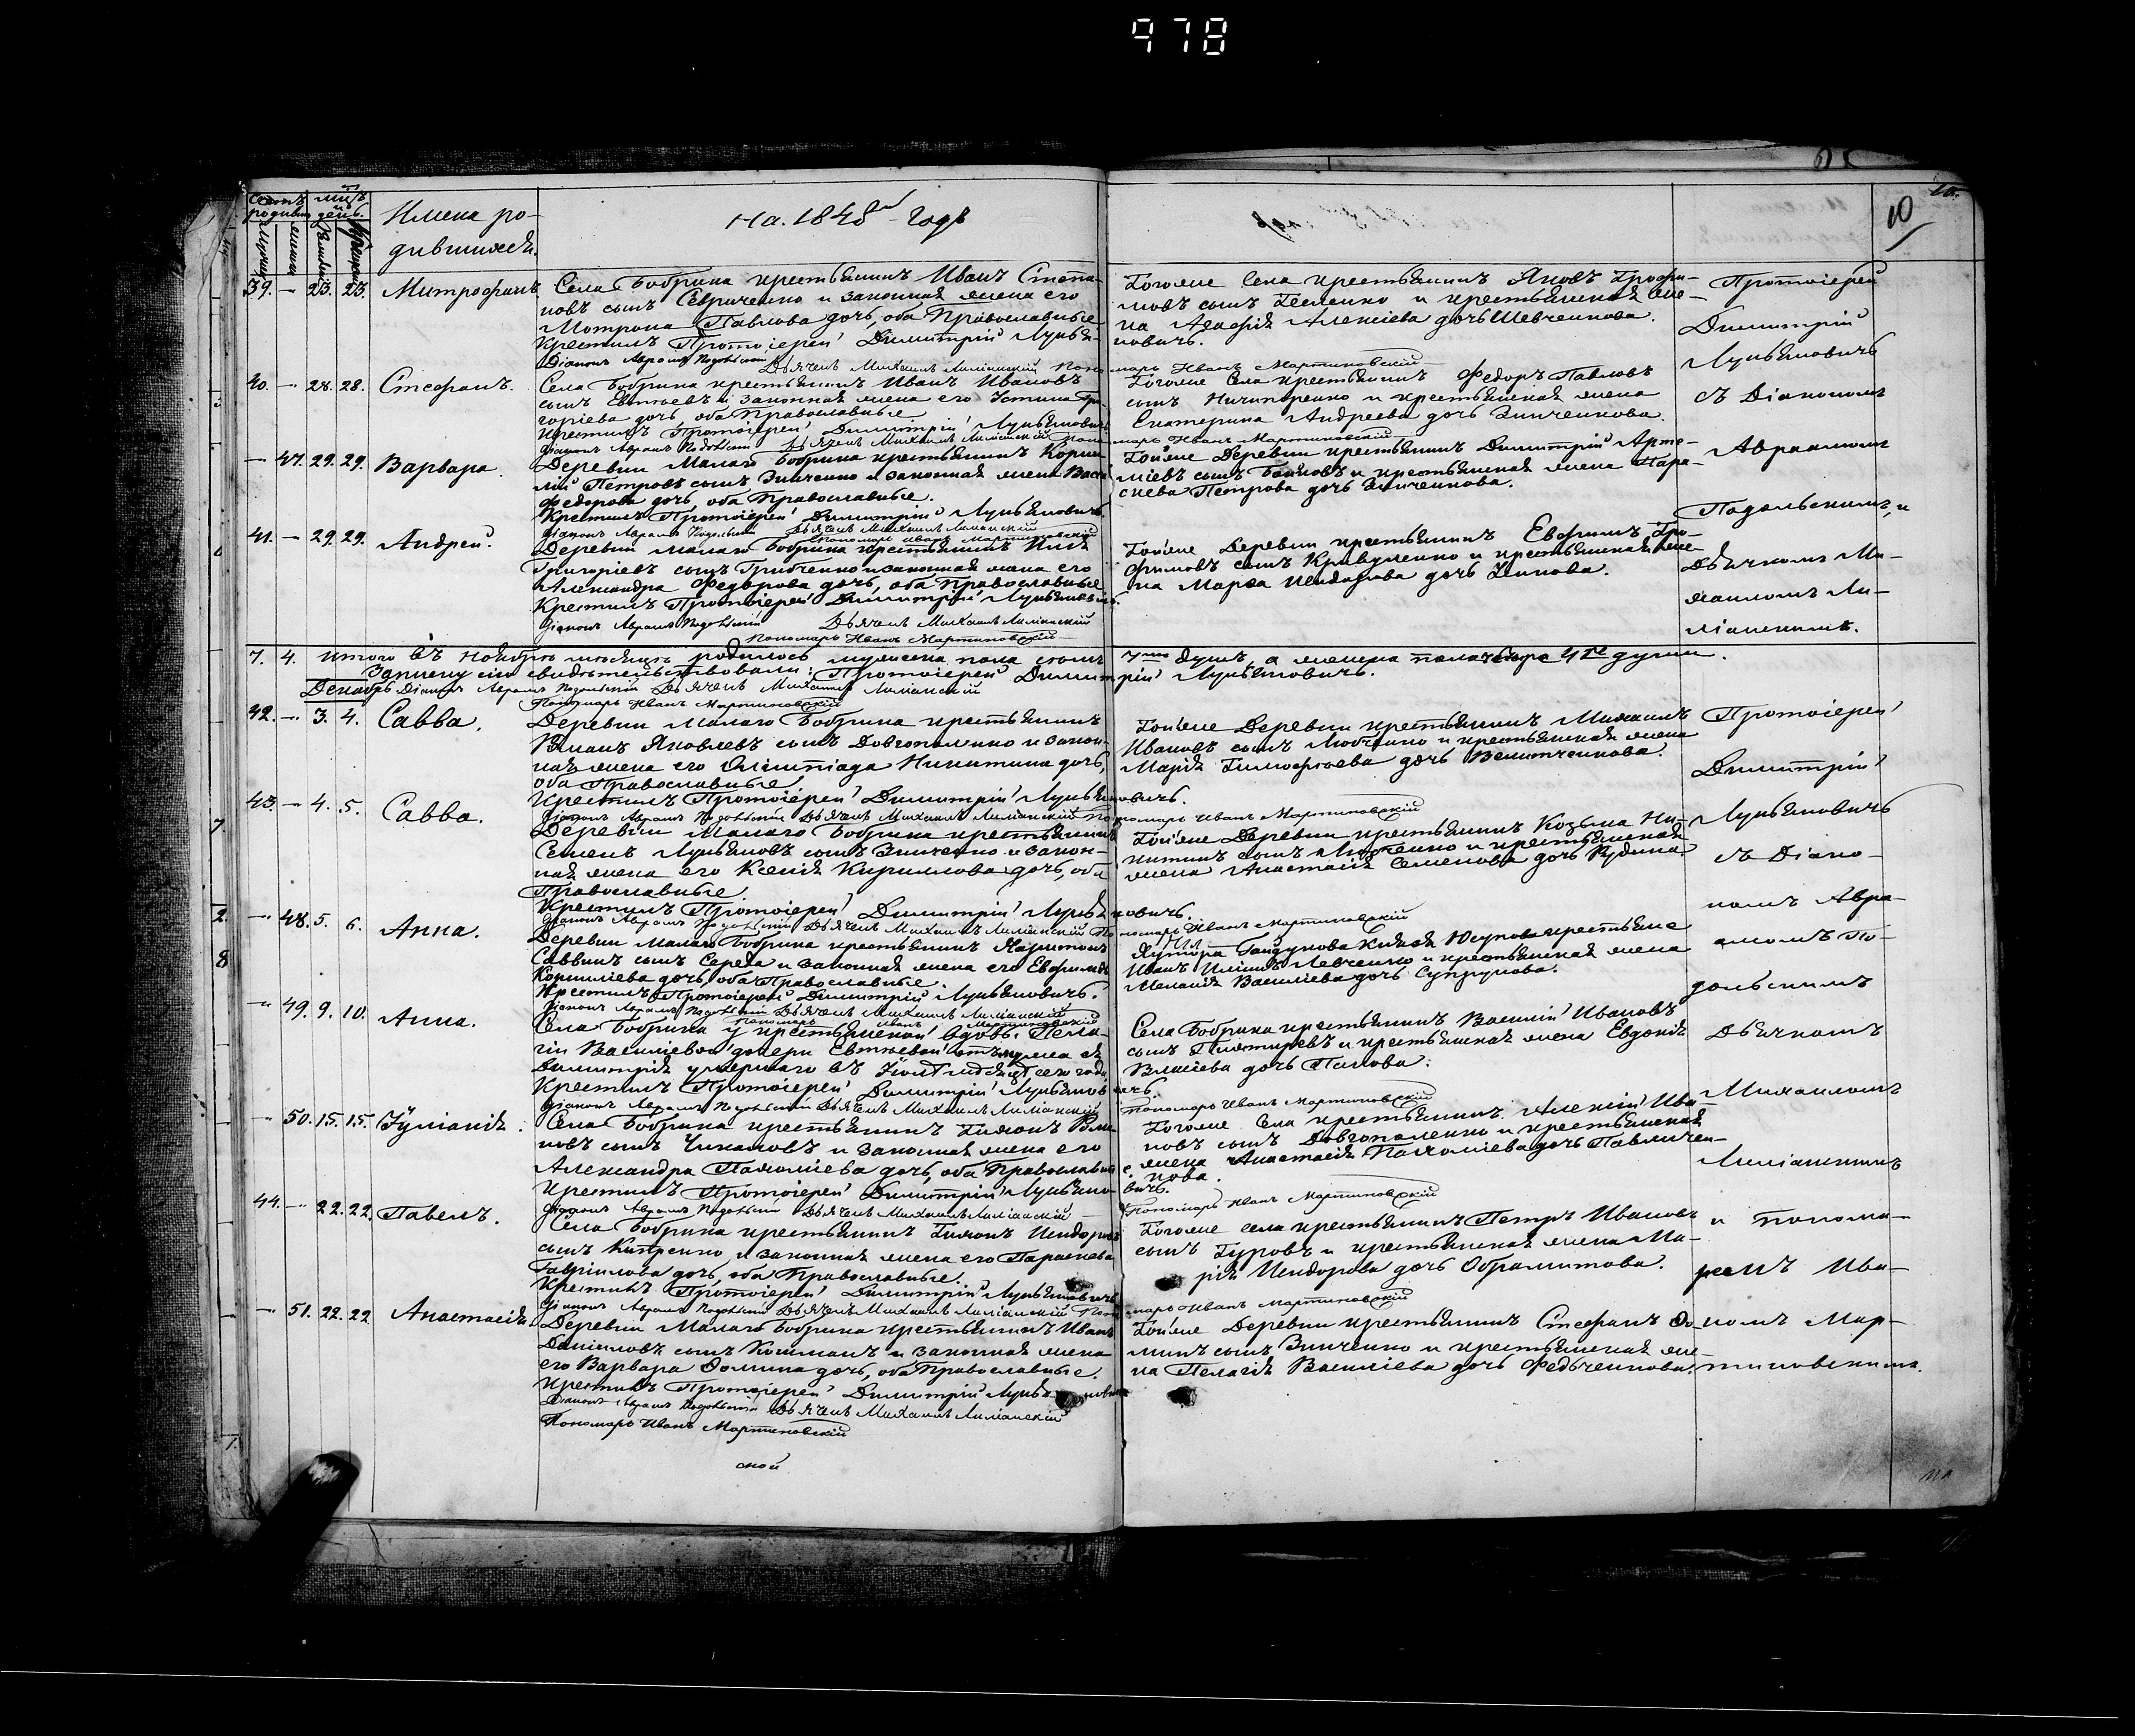 978
10.
10
Счетъ родивш.
мць и день.
Имена ро-
дившихся.
На 1848й годъ
39. — 23. 23. Митрофанъ
Села Бобрика крестьянинъ Иванъ Степа-
новъ сынъ Севриченко и законная жена его
Мотрона Павлова дочь, оба Православные
Крестилъ Протоіерей Димитрій Лукья-
новичъ.
Діаконъ Аврамъ Подольскій Дьячекъ Михаилъ Лиліанскій Пономарь Иванъ Мартиновскій
Тогоже Села крестьянинъ Яковъ Трофи-
мовъ сынъ и крестьянская же-
на Агафія Алексіева дочь Шевченкова.
40. — 28. 28. Стефанъ.
Села Бобрика крестьянинъ Иванъ Ивановъ
сынъ Евтѣевъ и законная жена его Устина Гри-
горіева дочь, оба Православные
Крестилъ Протоіерей Димитрій Лукьяновичъ
Діаконъ Аврамъ Подольскій Дьячекъ Михаилъ Лиліанскій Пономарь Иванъ Мартиновскій
Тогоже Села крестьянинъ Федоръ Павловъ
сынъ Ничипоренко и крестьянская жена
Екатерина Андреева дочь Зинченкова.
— 47. 29. 29. Варвара.
Деревни Малаго Бобрика крестьянинъ Корни-
лій Петровъ сынъ Зинченко и законная жена
Федорова дочь, оба Православные.
Крестилъ Протоіерей Димитрій Лукьяновичъ.
Діаконъ Аврамъ Подольскій Дьячекъ Михаилъ Лиліанскій
Пономарь Иванъ Мартиновскій
Тойже Деревни крестьянинъ Димитрій Арте-
міевъ сынъ и крестьянская жена Пара-
скева Петрова дочь Зинченкова.
41. — 29. 29. Андрей.
Деревни Малаго Бобрика крестьянинъ Илія
Григоріевъ сынъ Грибченко и законная жена его
Александра Федорова дочь, оба Православные
Крестилъ Протоіерей Димитрій Лукьяновичъ.
Діаконъ Аврамъ Подольскій Дьячекъ Михаилъ Лиліанскій
Пономарь Иванъ Мартиновскій
Тойже Деревни крестьянинъ Евфимъ Тро-
фимовъ сынъ и крестьянская же-
на Марфа Исидорова дочь
Протоіерей
Димитрій
Лукьяновичъ
съ Діакономъ
Авраамомъ
Подольскимъ, и
Дьячкомъ Ми-
хаиломъ Ли-
ліанскимъ.
7. 4. Итого въ Ноябрѣ мѣсяцѣ родилось мужеска пола семь 7мь душъ, а женска пола четыре 4ре души.
Запись сію свидѣтельствовали: Протоіерей Димитрій Лукьяновичъ.
Декабрь Діаконъ Аврамъ Подольскій Дьячекъ Михаилъ Лиліанскій
Пономарь Иванъ Мартиновскій
42. — 3. 4. Савва.
Деревни Малаго Бобрика крестьянинъ
Яковлевъ сынъ Довгополенко и закон-
ная жена его Олимпіада Никитина дочь,
оба Православные
Крестилъ Протоіерей Димитрій Лукьяновичъ.
Діаконъ Аврамъ Подольскій Дьячекъ Михаилъ Лиліанскій Пономарь Иванъ Мартиновскій
Тойже Деревни крестьянинъ Михаилъ
Ивановъ сынъ Любченко и крестьянская жена
Марія Тимофѣева дочь
43. — 4. 5. Савва.
Деревни Малаго Бобрика крестьянинъ
Семенъ Лукьяновъ сынъ Зинченко и закон-
ная жена его Ксенія Кириллова дочь, оба
Православные
Крестилъ Протоіерей Димитрій Лукьяновичъ.
Діаконъ Аврамъ Подольскій Дьячекъ Михаилъ Лиліанскій Пономарь Иванъ Мартиновскій
Тойже Деревни крестьянинъ Козьма Ни-
китинъ сынъ и крестьянская
жена Анастасія Семенова дочь
— 48. 5. 6. Анна.
Деревни Малаго Бобрика крестьянинъ Харитонъ
Саввинъ сынъ Середа и законная жена его Евфимія
Корниліева дочь, оба Православные.
Крестилъ Протоіерей Димитрій Лукьяновичъ.
Діаконъ Аврамъ Подольскій Дьячекъ Михаилъ Лиліанскій
Пономарь Иванъ Мартиновскій
Хутора Гайдукова Князя Юсупова крестьяне
Иванъ Левченко и крестьянская жена
Меланія Василіева дочь Супрунова.
— 49. 9. 10. Анна.
Села Бобрика у крестьянской вдовы Пела-
гіи Василіевой дочери Евтѣевой отъ мужа ея
Димитрія умершаго въ мѣсяцѣ сего года
Крестилъ Протоіерей Димитрій Лукьяновичъ.
Діаконъ Аврамъ Подольскій Дьячекъ Михаилъ Лиліанскій Пономарь Иванъ Мартиновскій
Села Бобрика крестьянинъ Василій Ивановъ
сынъ и крестьянская жена Евдокія
Власіева дочь Попова.
— 50. 15. 15. Іуліанія.
Села Бобрика крестьянинъ Тихонъ
новъ сынъ Чихановъ и законная жена его
Александра Пахоміева дочь, оба Православные
Крестилъ Протоіерей Димитрій Лукьяно-
вичъ.
Діаконъ Аврамъ Подольскій Дьячекъ Михаилъ Лиліанскій Пономарь Иванъ Мартиновскій
Тогоже Села крестьянинъ Алексій Ива-
новъ сынъ Довгополенко и крестьянская
жена Анастасія Пахоміева дочь Павличен-
кова.
44. — 22. 22. Павелъ.
Села Бобрика крестьянинъ Тихонъ Исидоровъ
сынъ Кипренко и законная жена его Параскева
Гавріилова дочь, оба Православные.
Крестилъ Протоіерей Димитрій Лукьяновичъ
Діаконъ Аврамъ Подольскій Дьячекъ Михаилъ Лиліанскій Пономарь Иванъ Мартиновскій
Тогоже села крестьянинъ Петръ Ивановъ
сынъ Гуровъ и крестьянская жена Ма-
рія Исидорова дочь
— 51. 22. 22. Анастасія.
Деревни Малаго Бобрика крестьянинъ Иванъ
Даніиловъ сынъ Кошманъ и законная жена
его Варвара Фомина дочь, оба Православные.
Крестилъ Протоіерей Димитрій Лукьяновичъ
Діаконъ Аврамъ Подольскій Дьячекъ Михаилъ Лиліанскій
Пономарь Иванъ Мартиновскій
Тойже Деревни крестьянинъ Стефанъ Фо-
минъ сынъ Зинченко и крестьянская же-
на Пелагія Василіева дочь Федченкова.
Протоіерей
Димитрій
Лукьяновичъ
съ Діако-
номъ Авра-
амомъ По-
дольскимъ
Дьячкомъ
Михаиломъ
Лиліанскимъ
и понома-
ремъ Ива-
номъ Мар-
тиновскимъ.
ской